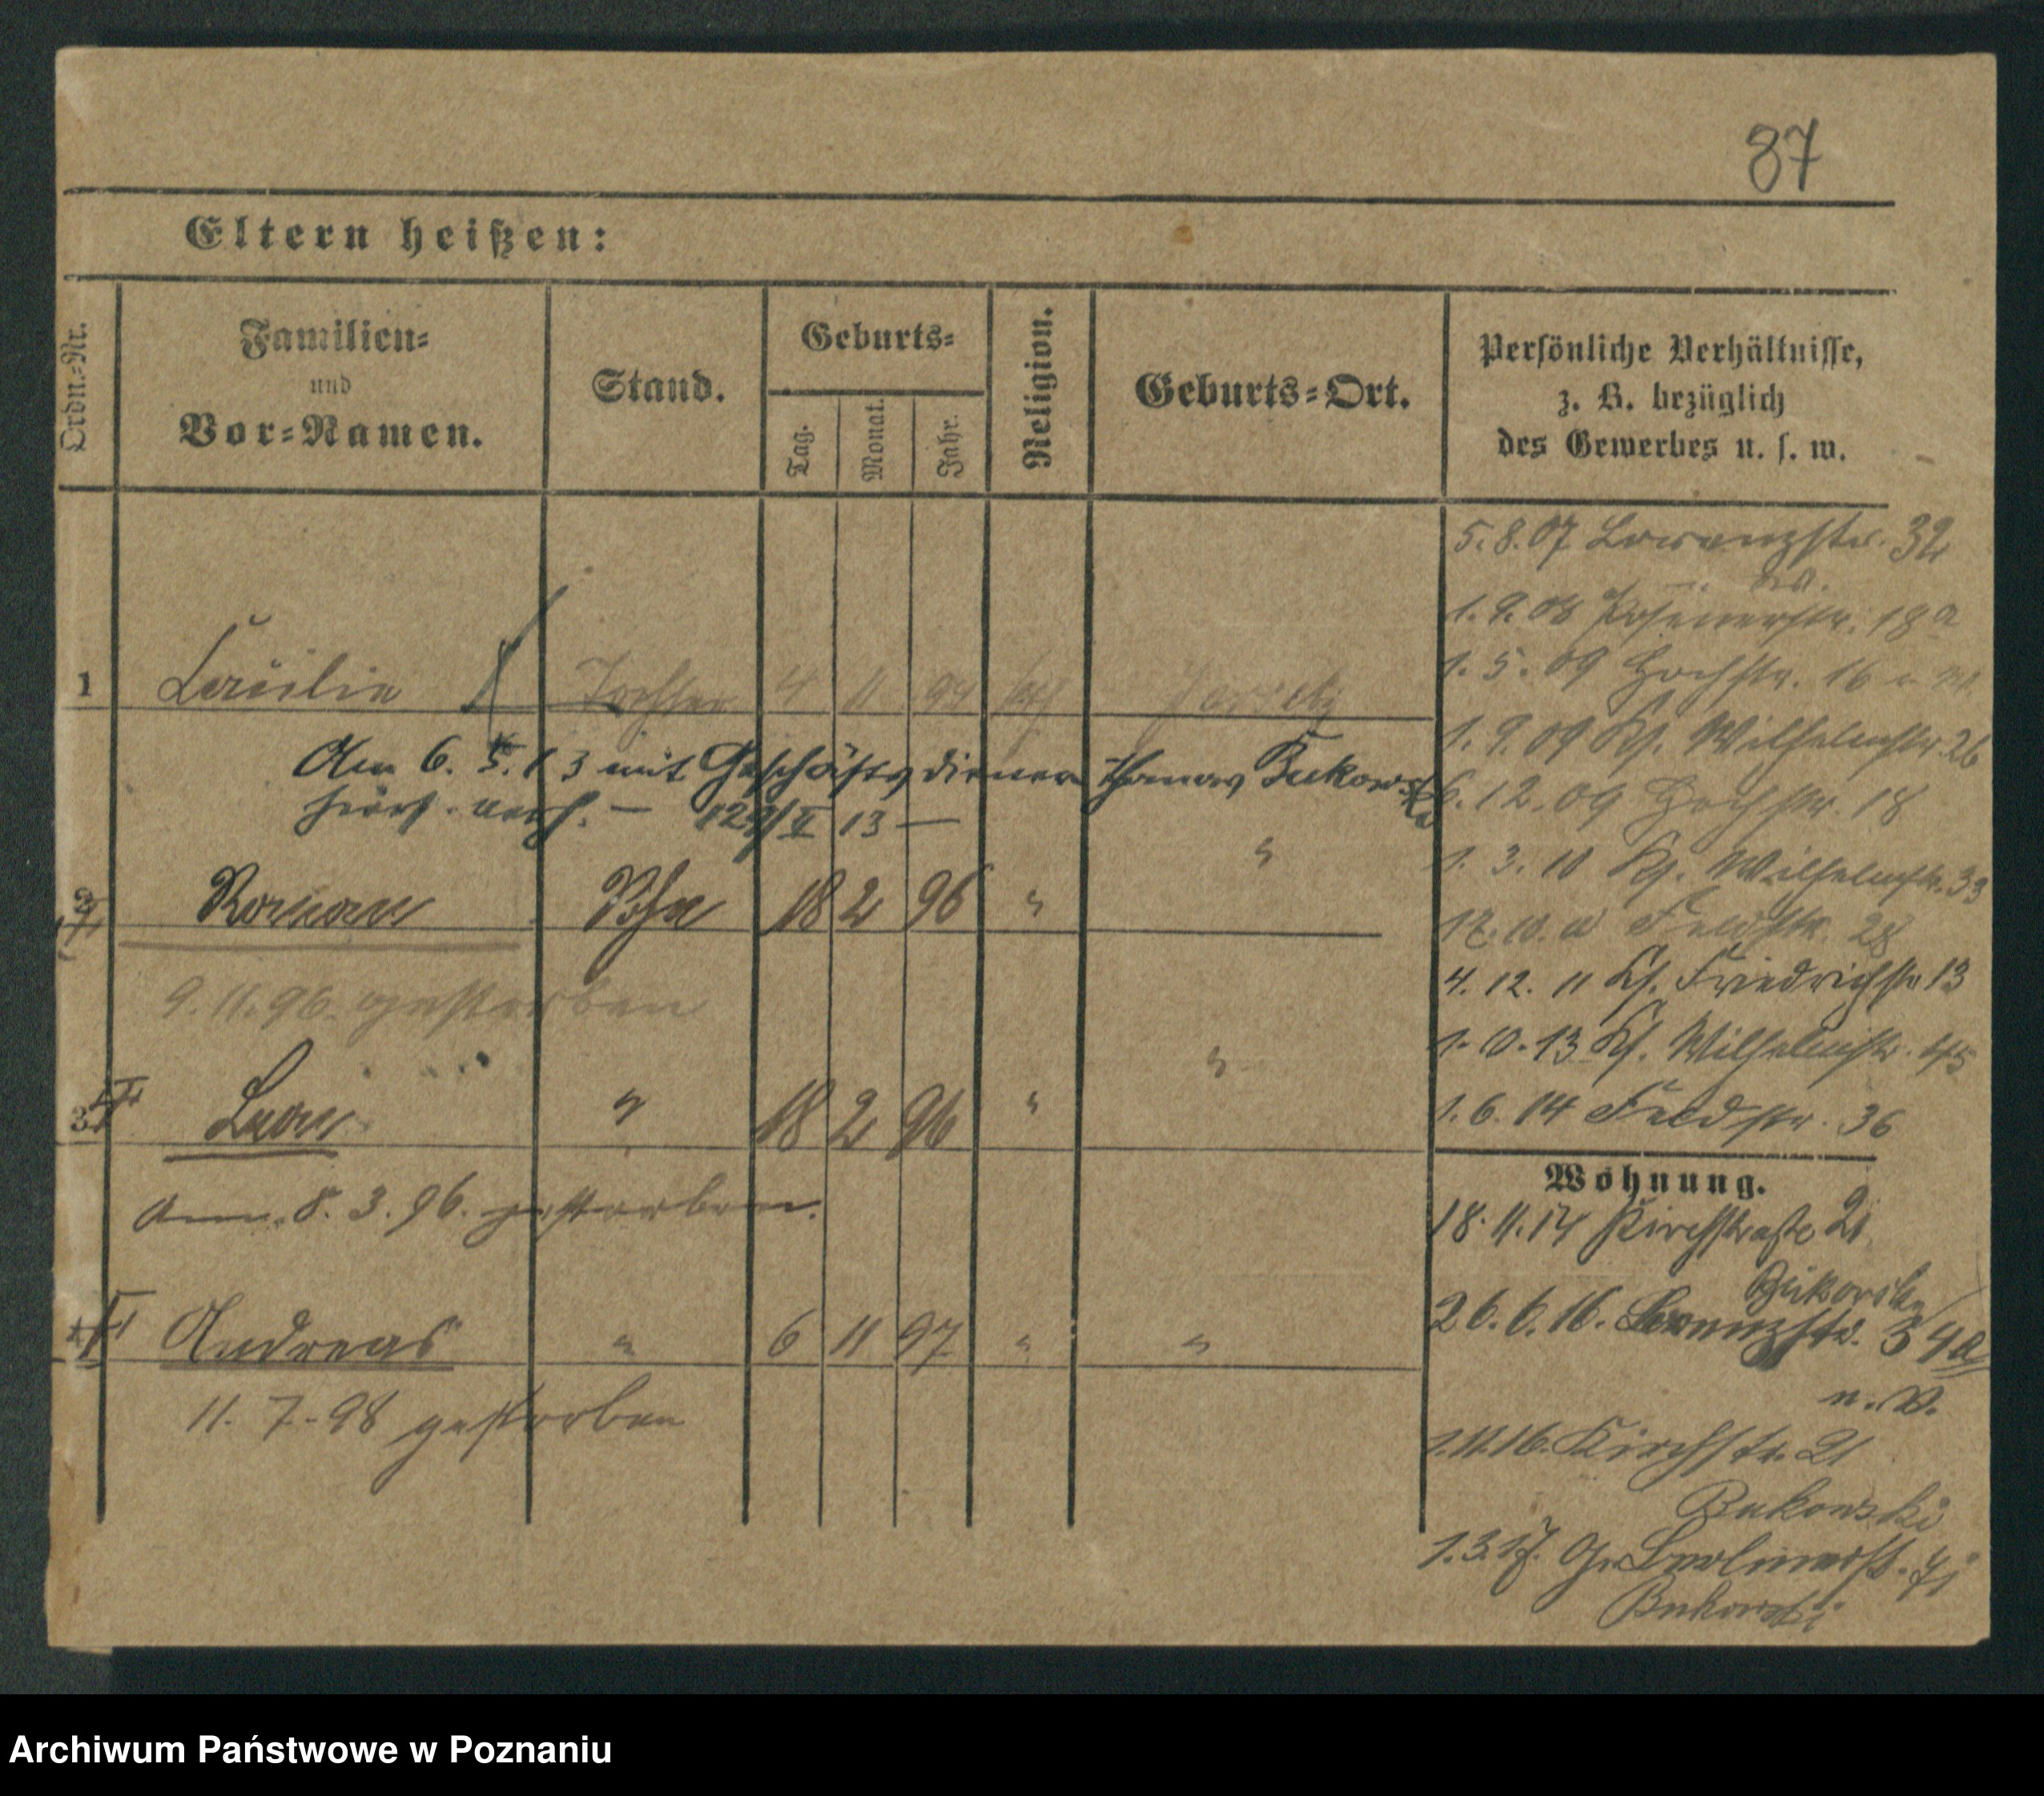 87
Eltern heißen:
Ordn.-Nr.
Familien-
und
Vor-Namen.
Stand.
Geburts-
Tag.
Monat.
Jahr.
Religion.
Geburts-Ort.
Persönliche Verhältnisse,
z. B. bezüglich
des Gewerbes u. s. w.
1 Cäcilie Tochter 4 11 94
Am 6. 5. 13 mit Geschäftsdiener Thomas Bukowski
hier verh. — 129/II 13 —
2 Roman Sohn 18 2 96 "
9.11.96. gestorben
3 Leon " 18 2 96 " "
Am 8. 3. 96. gestorben.
4 Andreas " 6 11 97 " "
11. 7. 98 gestorben
5. 8. 07 Lorenzstr. 32
1. 9. 08 Posenerstr. 18a
1. 5. 09 Hochstr. 16
1. 9. 09 Ks. Wilhelmstr. 26
6. 12. 09 Hochstr. 18
1. 3. 10 Ks. Wilhelmstr. 33
Feldstr. 28
4. 12. 11 Ks. Friedrichstr 13
1. 10. 13 Ks. Wilhelmstr. 45
1. 6. 14 Feldstr. 36
Wohnung.
18. 11. 14 Kirchstraße 21
Bukowski
26. 6. 16. Lorenzstr. 34a
1.11.16. Kirchstr. 21
Bukowski
1.3.17. Gr. Berlinerstr.
Bukowski
Archiwum Państwowe w Poznaniu